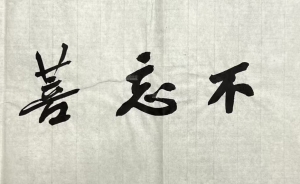 不忘善